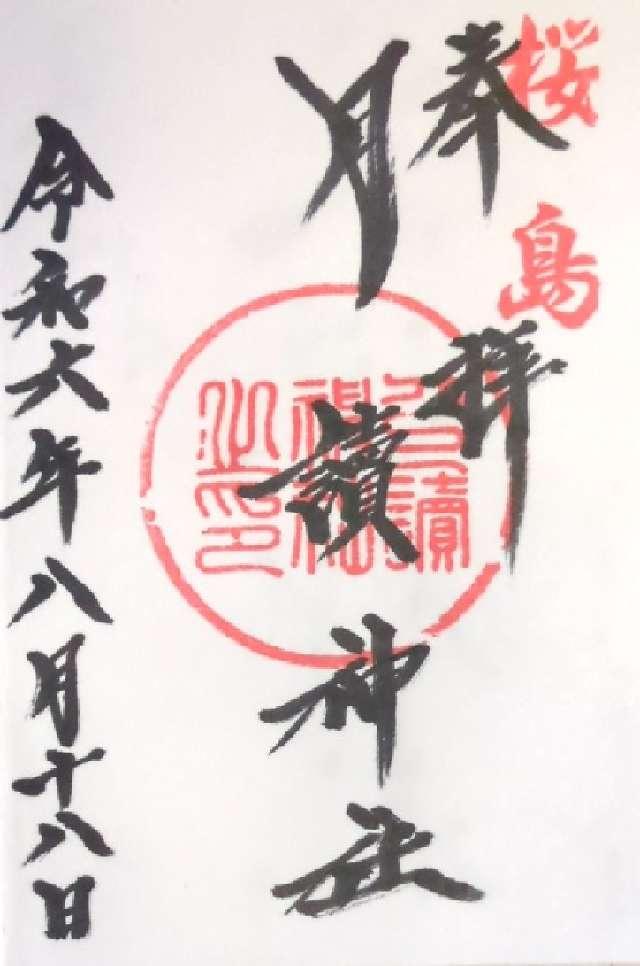 桜島
奉拝
月讀神社
月讀神社之印
令和六年八月十八日